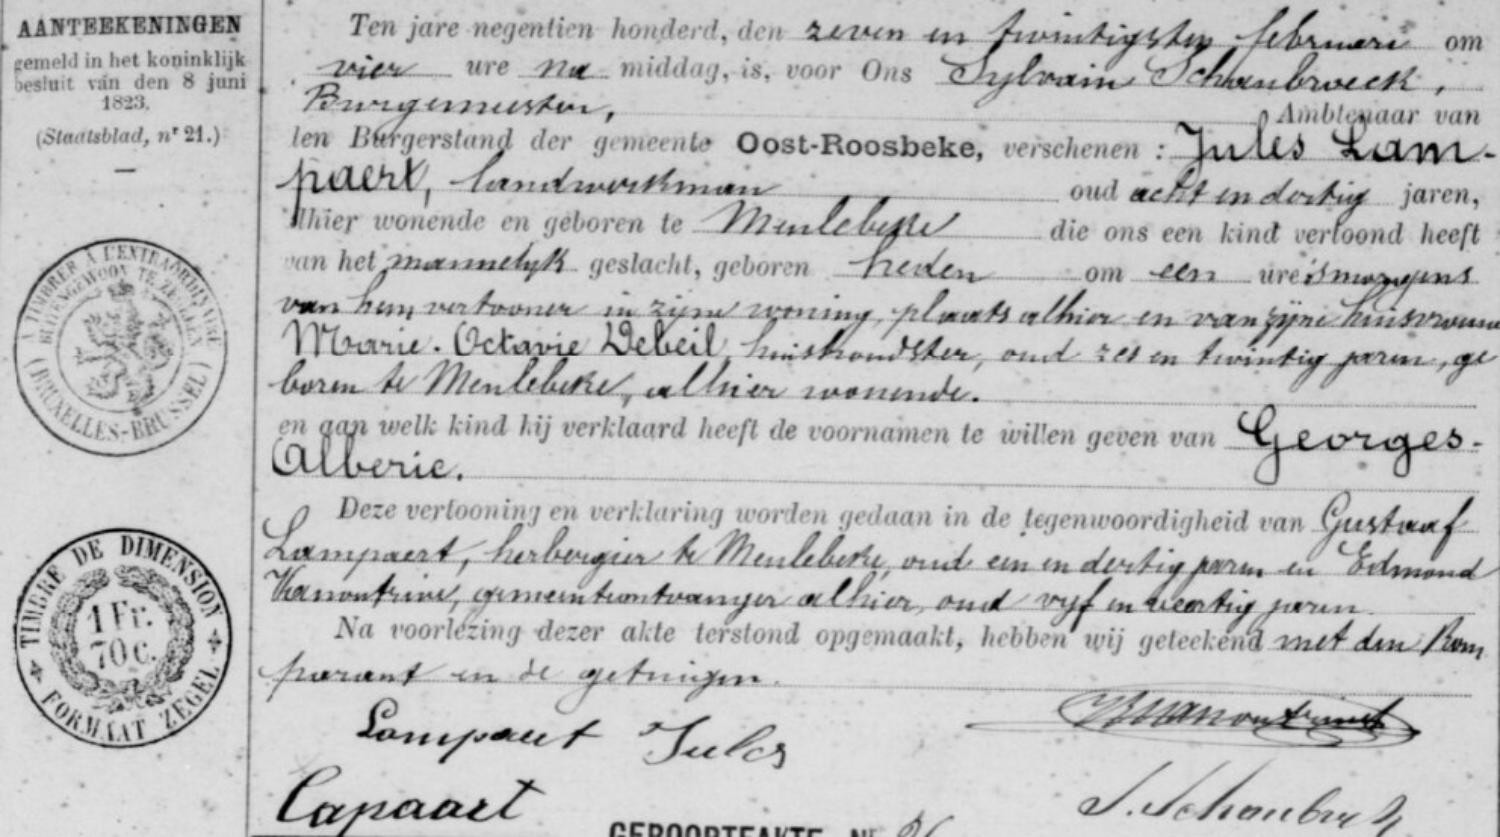 AANTEEKENINGEN
gemeld in het koninklijk
besluit van den 8 juni
1823.
(Staatsblad, nr 21.)
Ten jare negentien honderd, den zeven en twintigsten februari om
vier ure na middag, is, voor Ons Sylvain Schoubroeck,
Burgemeester, Ambtenaar van
den Burgerstand der gemeente Oost-Roosbeke, verschenen : Jules Lam-
paert, landwerkman oud acht en dertig jaren,
alhier wonende en geboren te Meulebeke die ons een kind vertoond heeft
van het mannelyk geslacht, geboren heden om een ure 'smorgens
van hem vertooner in zijne woning, plaats alhier en van zijne huisvrouw
Marie-Octavie Debeil, huishoudster, oud zes en twintig jaren, ge
boren te Meulebeke, alhier wonende.
en aan welk kind hij verklaard heeft de voornamen te willen geven van Georges-
Alberic.
Deze vertooning en verklaring worden gedaan in de tegenwoordigheid van Gustaaf
Lampaert, herbergier te Meulebeke, oud een en dertig jaren en Edmond
gemeenteontvanger alhier, oud vyf en veertig jaren.
Na voorlezing dezer akte terstond opgemaakt, hebben wij geteekend met den Kom
parant en de getuigen.
Lampaert Jules
Lapaart
S. Schoubroeck
GEBOORTEAKTE Nr
A TIMBRER A L'EXTRAORDINAIRE
BUITENGEWOON TE ZEGELEN
(BRUXELLES-BRUSSEL)
TIMBRE DE DIMENSION
1 Fr.
70 c.
FORMAAT ZEGEL